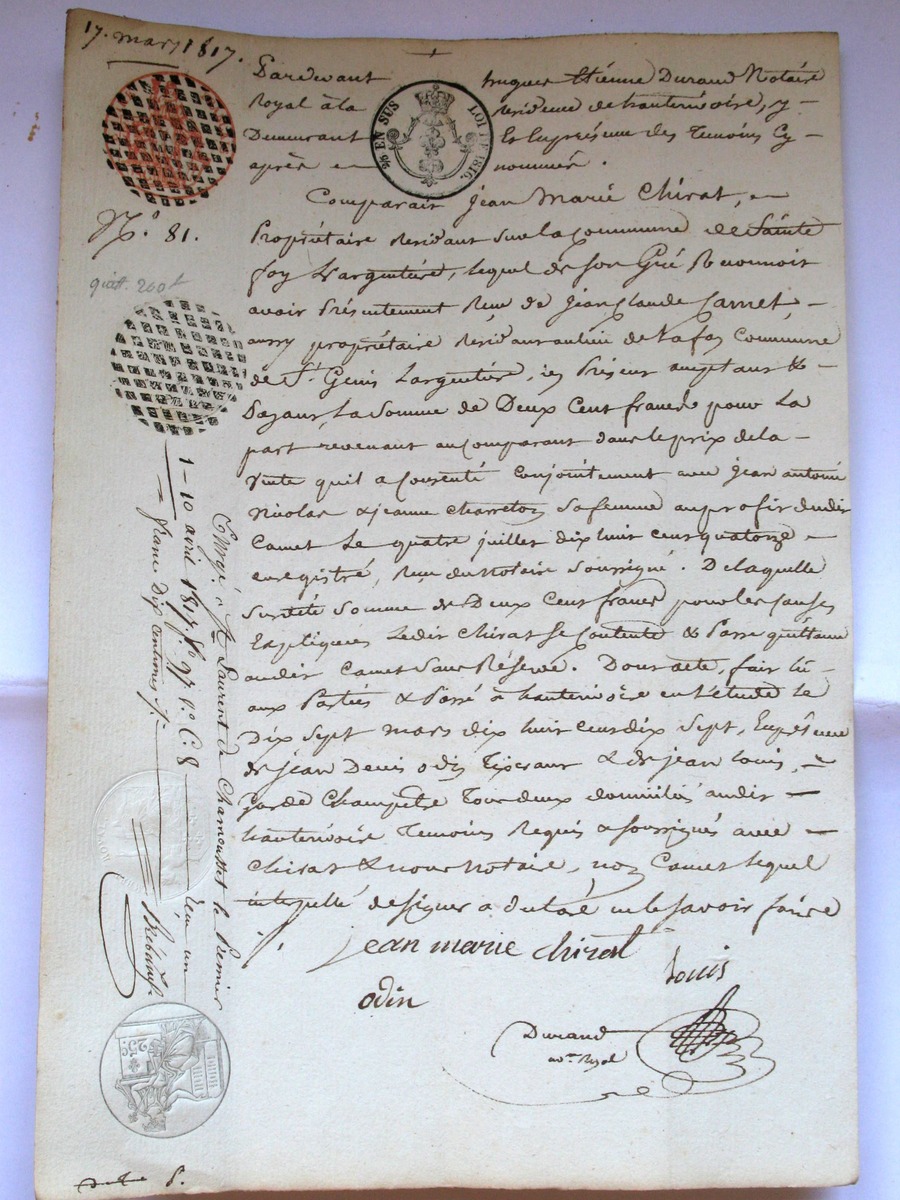 17. mars 1817.
Pardevant hugues Etienne Durand Notaire
Royal à la residence de hauterivoire, y
Demeurant & En présence des Temoins Cy
après en nommés.
EN SUS LOI DE 1816.
Comparait Jean Marie Chirat,
N.o 81.
Propriétaire Residant sur la Commune de Sainte
foy Largentière, lequel de son Gré Reconnoit
quitt. 200 f
avoir Présentement Reçu de Jean Claude Camet
aussy propriétaire residant au lieu de Commune
de St Genis Largentière, icy Présent acceptant &
Payant, La Somme de Deux Cent francs pour La
part revenant au comparant dans le prix de la
Vente quil a Consenté Conjointement avec Jean antoine
Nicolas & jeanne Charreton sa femme au profit dudit
Camet Le quatre juillet dix huit cent quatorze
enregistré, Reçu du Notaire soussigné. De laquelle
susdité Somme de Deux Cent francs pour les causes
Expliquées Ledit Chirat se Contente & Passe quittance
audit Camet Sans Réserve. Dont acte, fait lu
aux Parties & Passé à hauterivoire en L'étude le
Dix Sept mars dix huit cent dix sept, En présence
de jean Denis odin Tixerant & de jean Louis,
garde Champetre Tous deux domiciliés audit
hauterivoire Temoins Requis & soussignés avec
Chirat & nous Notaire, non Camet lequel
interpellé de signer a déclaré ne le savoir faire
jean marie chirat
Louis
odin
Durand
no.re Royal
Enregé à St Laurent de Chamousset le Dernier
1 - 10 avril 1817. fo 97 vo C. 8 Reçu un
franc Dix Centimes
25 c.